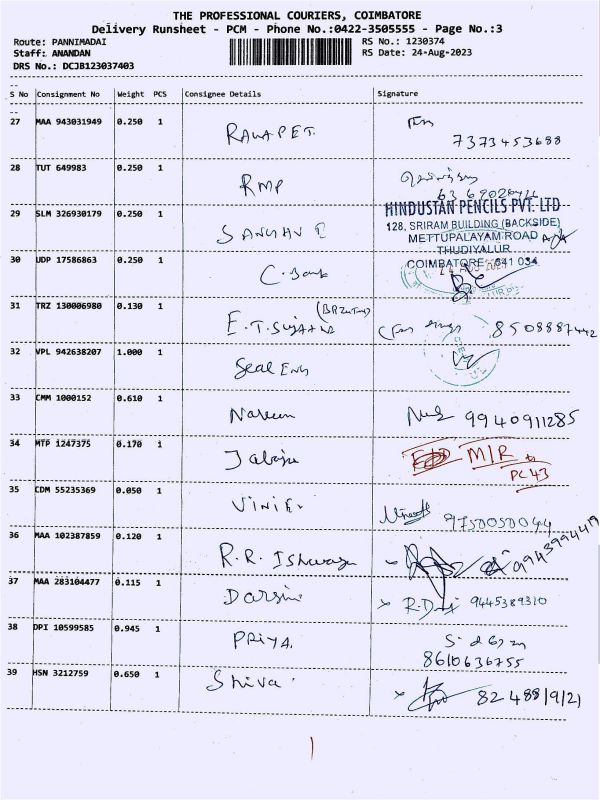 THE PROFESSIONAL COURIERS, COIMBATORE
Delivery Runsheet - PCM - Phone No.:0422-3505555 - Page No.:3
Route: PANNIMADAI RS No.: 1230374
Staff: ANANDAN RS Date: 24-Aug-2023
DRS No.: DCJB123037403
S No Consignment No Weight PCS Consignee Details Signature
27 MAA 943031949 0.250 1
7373453688
28 TUT 649983 0.250 1 RMP
29 SLM 326930179 0.250 1
HINDUSTAN PENCILS PVT. LTD
128, SRIRAM BUILDING (BACKSIDE)
METTUPALAYAM ROAD
THUDIYALUR
COIMBATORE - 641 034
30 UDP 17586863 0.250 1 C. Bank
31 TRZ 130006980 0.130 1 E.T. 8508887442
32 VPL 942638207 1.000 1 Seal Eng
33 CMM 1000152 0.610 1 Naveen 9940911285
34 MTP 1247375 0.170 1 M/R
PC 43
35 CDM 55235369 0.050 1 9750050044
36 MAA 102387859 0.120 1 R.R. 9943994419
37 MAA 283104477 0.115 1 Darsini R.D 9445389310
38 DPI 10599585 0.945 1 PRIYA.
8610636755
39 HSN 3212759 0.650 1 Shiva